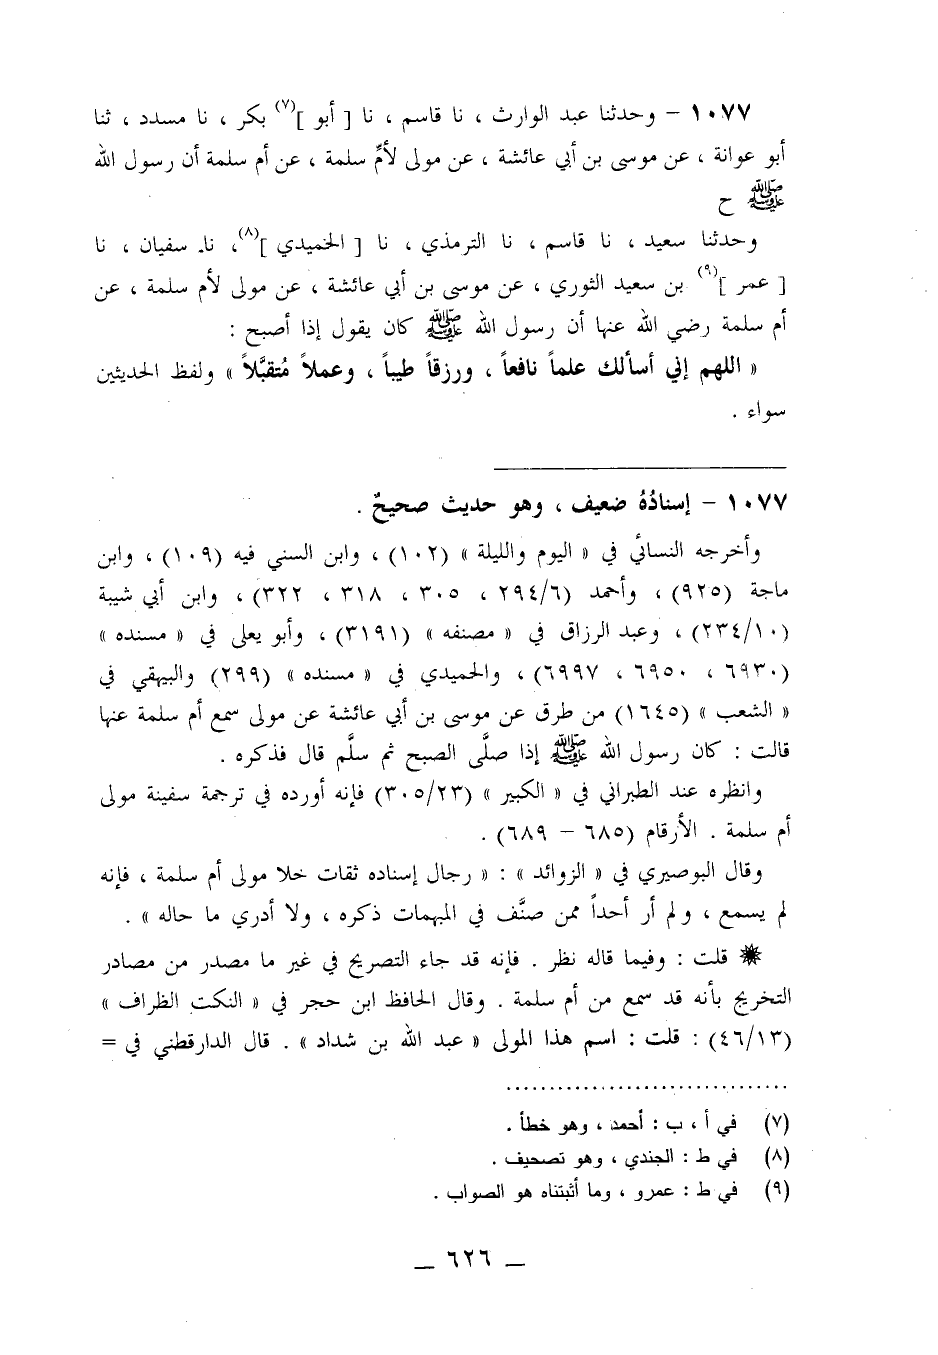 ١٠٧٧ - وحدثنا عبد الوارث ، نا قاسم ، نا [ أبو ](٧) بكر ، نا مسدد ، ثنا
أبو عوانة ، عن موسى بن أبي عائشة ، عن مولى لأمِّ سلمة ، عن أم سلمة أن رسول الله
ﷺ ح
وحدثنا سعيد ، نا قاسم ، نا الترمذي ، نا [ الحميدي ](٨)، نا. سفيان ، نا
[ عمر ](٩) بن سعيد الثوري ، عن موسى بن أبي عائشة ، عن مولى لأم سلمة ، عن
أم سلمة رضي الله عنها أن رسول الله ﷺ كان يقول إذا أصبح :
« اللهم إني أسألك علماً نافعاً ، ورزقاً طيباً ، وعملاً مُتقبَّلاً » ولفظ الحديثين
سواء .
١٠٧٧ - إسنادُهُ ضعيف ، وهو حديث صحيحٌ .
وأخرجه النسائي في « اليوم والليلة » (١٠٢) ، وابن السني فيه (١٠٩) ، وابن
ماجة (٩٢٥) ، وأحمد (٢٩٤/٦ ، ٣٠٥ ، ٣١٨ ، ٣٢٢) ، وابن أبي شيبة
(٢٣٤/١٠) ، وعبد الرزاق في « مصنفه » (٣١٩١) ، وأبو يعلى في « مسنده »
(٦٩٣٠ ، ٦٩٥٠ ، ٦٩٩٧) ، والحميدي في « مسنده » (٢٩٩) والبيهقي في
« الشعب » (١٦٤٥) من طرق عن موسى بن أبي عائشة عن مولى سمع أم سلمة عنها
قالت : كان رسول الله ﷺ إذا صلَّى الصبح ثم سلَّم قال فذكره .
وانظره عند الطبراني في « الكبير » (٣٠٥/٢٣) فإنه أورده في ترجمة سفينة مولى
أم سلمة . الأرقام (٦٨٥ - ٦٨٩) .
وقال البوصيري في « الزوائد » : « رجال إسناده ثقات خلا مولى أم سلمة ، فإنه
لم يسمع ، ولم أر أحداً ممن صنَّف في المبهمات ذكره ، ولا أدري ما حاله » .
✺ قلت : وفيما قاله نظر . فإنه قد جاء التصريح في غير ما مصدر من مصادر
التخريج بأنه قد سمع من أم سلمة . وقال الحافظ ابن حجر في « النكت الظراف »
(٤٦/١٣) : قلت : اسم هذا المولى « عبد الله بن شداد » . قال الدارقطني في =
(٧) في أ ، ب : أحمد ، وهو خطأ .
(٨) في ط : الجندي ، وهو تصحيف .
(٩) في ط : عمرو ، وما أثبتناه هو الصواب .
ـ ٦٢٦ ـ